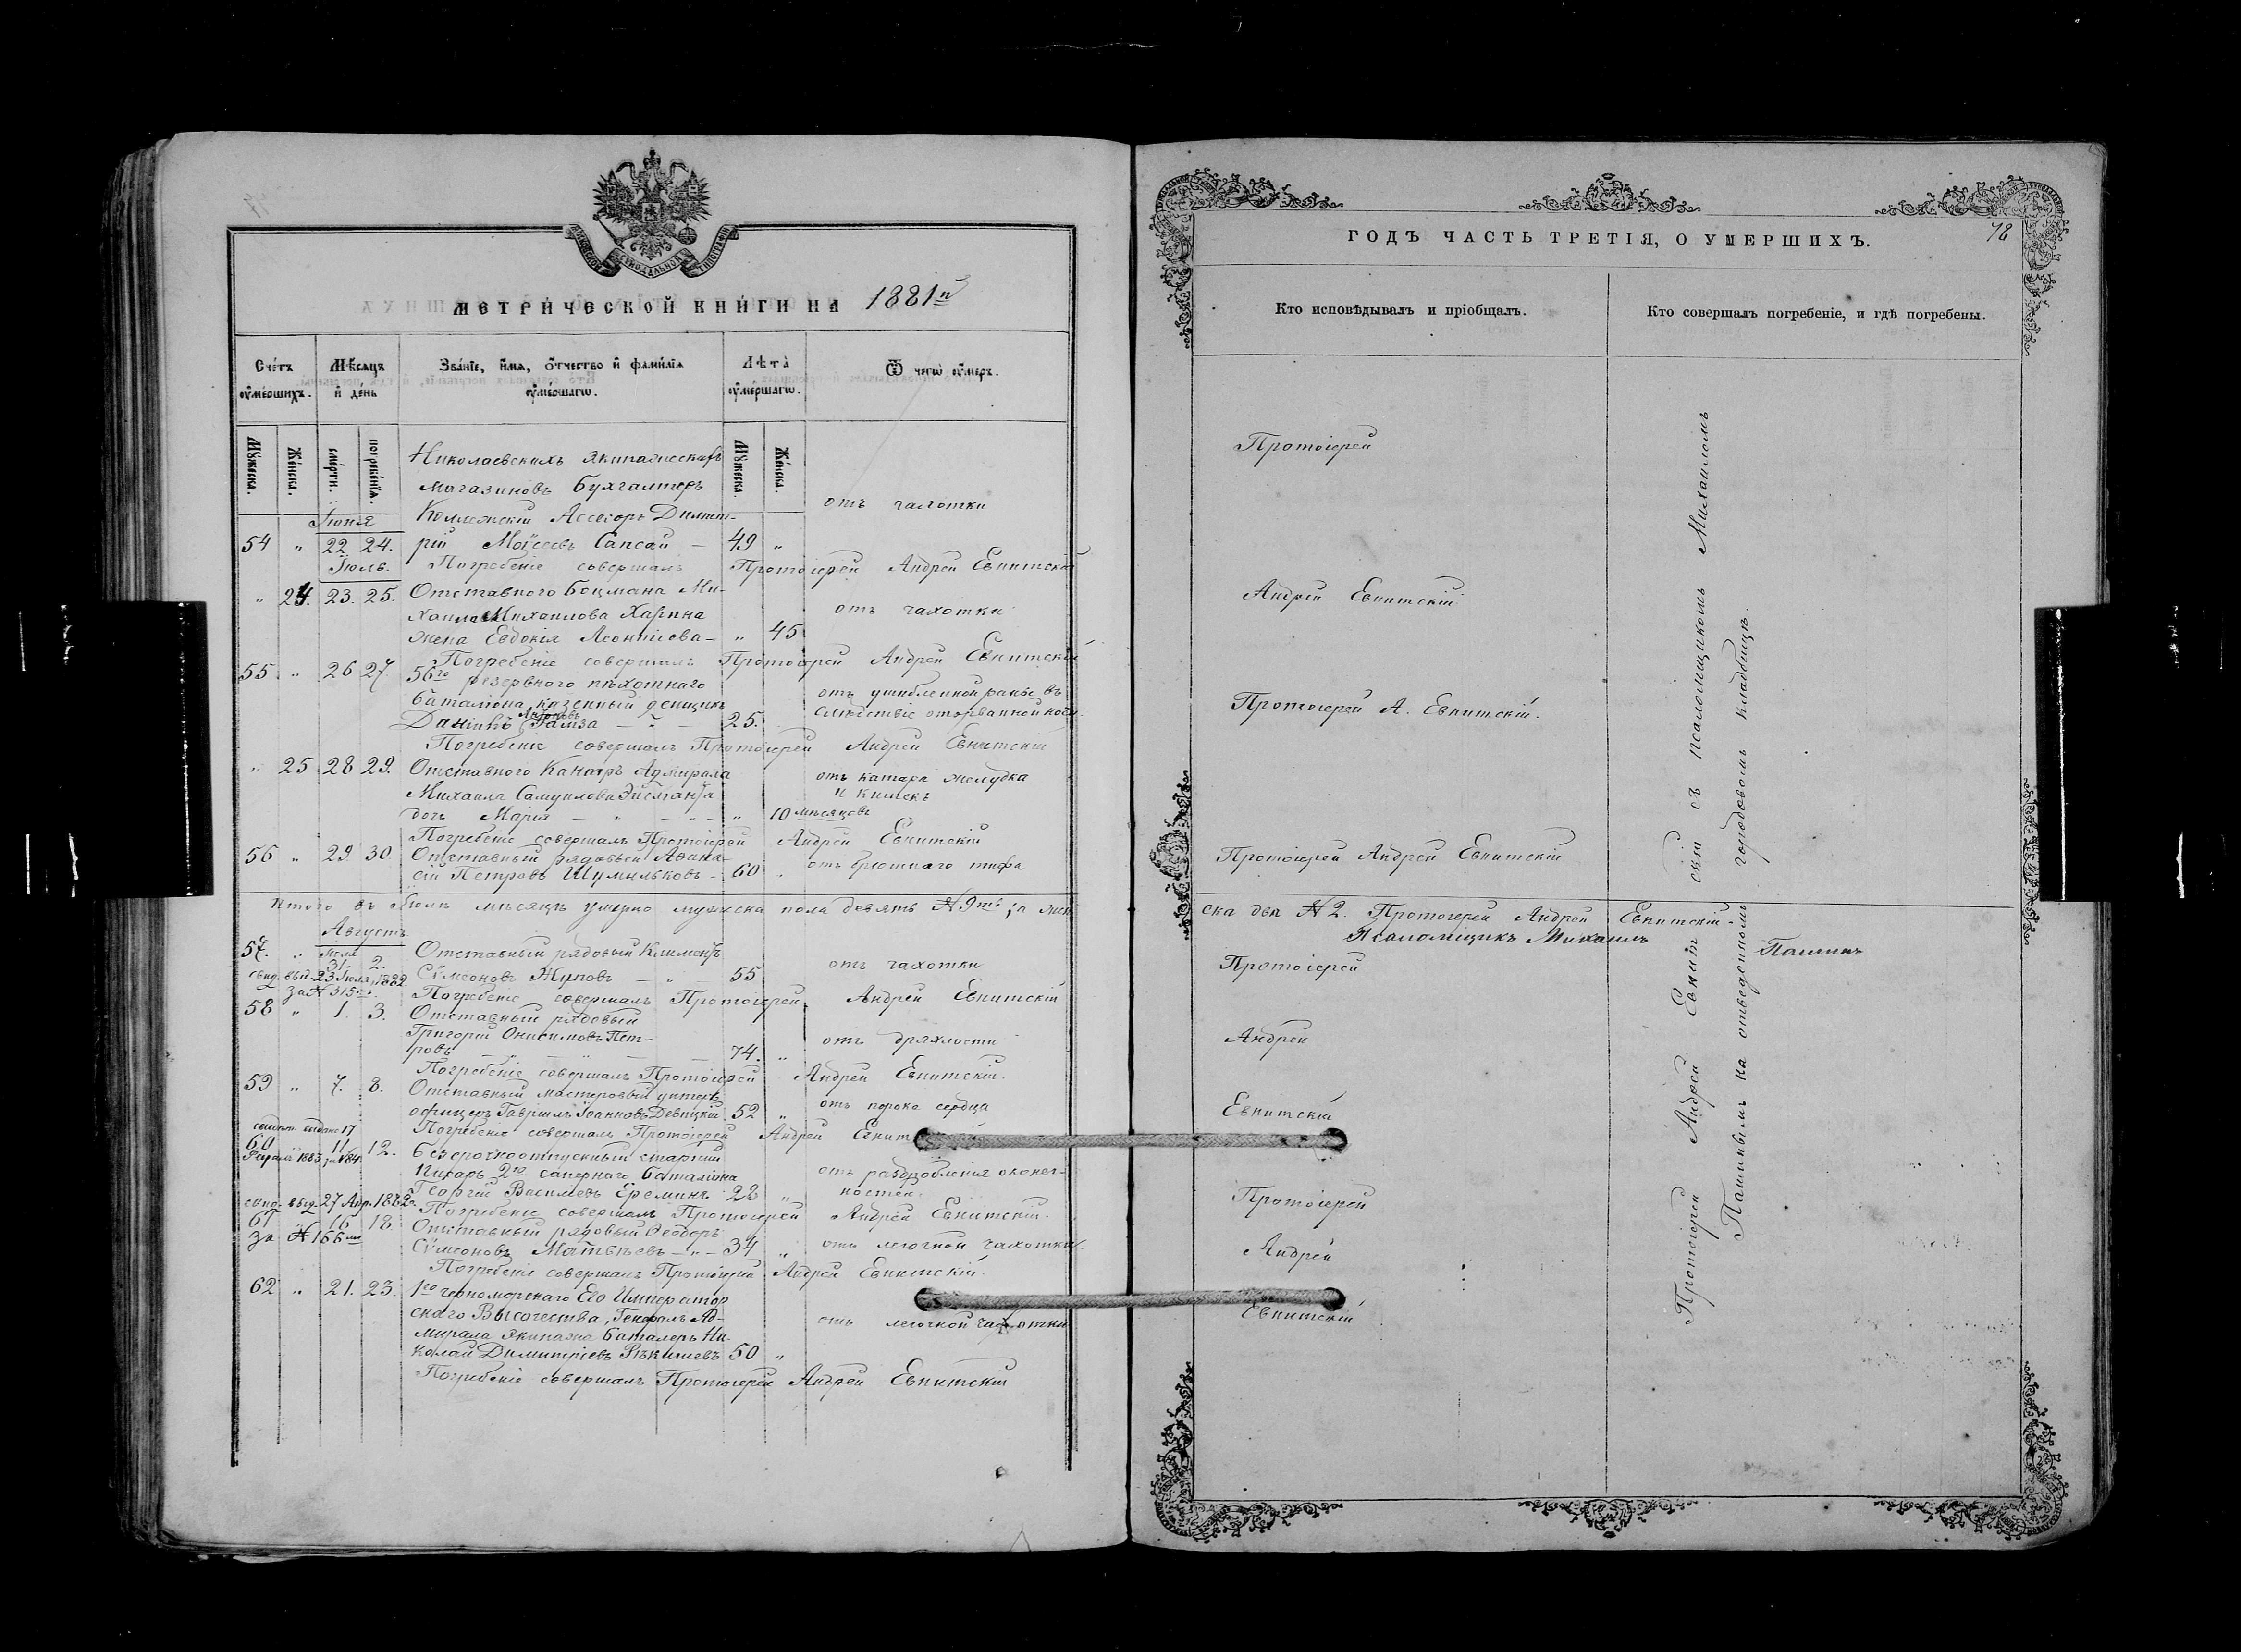 МОСКОВСКОЙ СѴНОДАЛЬНОЙ ТИПОГРАФІИ
МЕТРИЧЕСКОЙ КНИГИ НА 1881й
Счетъ умершихъ.
Мѣсяцъ и день
Званїе, имя, отчество и фамилїя умершагѡ.
Лѣта умершагѡ.
Ѿ чегѡ умеръ.
Мужеска.
Женска.
смерти.
погребенїя.
Мужеска.
Женска.
Николаевскихъ Экипажескихъ
магазиновъ Бухгалтеръ
Іюня Коллежскій Ассесоръ Димит- отъ чахотки
54 „ 22 24. рій Моѵсеевъ Сапсай — 49 „
Погребеніе совершалъ Протоіерей Андрей Евнитскій
Іюль.
„ 24. 23. 25. Отставного Боцмана Ми-
хаила Михаилова Харина отъ чахотки
жена Евдокія Леонтіева — „ 45
Погребеніе совершалъ Протоіерей Андрей Евнитскій
55 „ 26 27. 56го резервного пѣхотнаго
баталіона казенный денщикъ отъ ушибленной раны въ
25. слѣдствіе оторванной ноги.
Погребеніе совершалъ Протоіерей Андрей Евнитскій
„ 25 28 29. Отставного Контръ Адмирала отъ катара желудка
Михаила Самуилова и кишекъ
дочь Марія — „ — „ — „ 10 мѣсяцовъ
Погребеніе совершалъ Протоіерей Андрей Евнитскій
56 „ 29 30 Отставный рядовый Аѳана-
сій Петровъ Шумильковъ — 60 „ отъ брюшнаго тифа
Итого въ Іюлѣ мѣсяцѣ умерло мужеска пола девять № 9ть; а жен
Августъ
57. „ Іюля 31. 2. Отставный рядовый Климентъ
свид. выд. 23 Іюля 1882 Сѵмеоновъ Жуповъ — „ 55 отъ чахотки
за № 315 Погребеніе совершалъ Протоіерей Андрей Евнитскій
58 „ 1. 3. Отставный рядовый
Григорій Онисимовъ Пет-
ровъ — „ — „ — 74. „ отъ дряхлости
Погребеніе совершалъ Протоіерей Андрей Евнитскій.
59 „ 7. 8. Отставный мастеровый унтеръ
офицеръ Гавріилъ Іоанновъ Девицкій 52 „ отъ порока сердца
Погребеніе совершалъ Протоіерей Андрей
60 „ 11 12. Безсрочноотпускный старшій
Писарь 2го сапернаго баталіона отъ раздробленія оконеч-
Георгій Василіевъ Ереминъ 28 „ ностей
свид. выд. 27 Апр. Погребеніе совершалъ Протоіерей Андрей Евнитскій.
61 „ 16 18 Отставный рядовый Ѳеодоръ
за № 166 Сѵмеоновъ Матвѣевъ — „ — 34 „ отъ легочной чахотки.
Погребеніе совершалъ Протоіерей Андрей Евнитскій.
62 „ 21. 23. 1го черноморскаго Его Император
скаго Высочества, Генералъ Ад-
мирала Экипажа баталеръ Ни- отъ легочной чахотки
колай Димитріевъ 50 „
Погребеніе совершалъ Протоіерей Андрей Евнитскій
ГОДЪ ЧАСТЬ ТРЕТІЯ, О УМЕРШИХЪ.
78
Кто исповѣдывалъ и пріобщалъ.
Кто совершалъ погребеніе, и гдѣ погребены.
Протоіерей
Андрей Евнитскій
Протоіерей А. Евнитскій.
Протоіерей Андрей Евнитскій
ска два № 2. Протоіерей Андрей Евнитскій.
Псаломщикъ Михаилъ Пашинъ
Протоіерей
Андрей
Евнитскій
Протоіерей
Андрей
Евнитскій
Протоіерей Андрей Евнитскій съ псаломщикомъ Михаиломъ
Пашинымъ на отведенномъ городовомъ кладбищѣ.